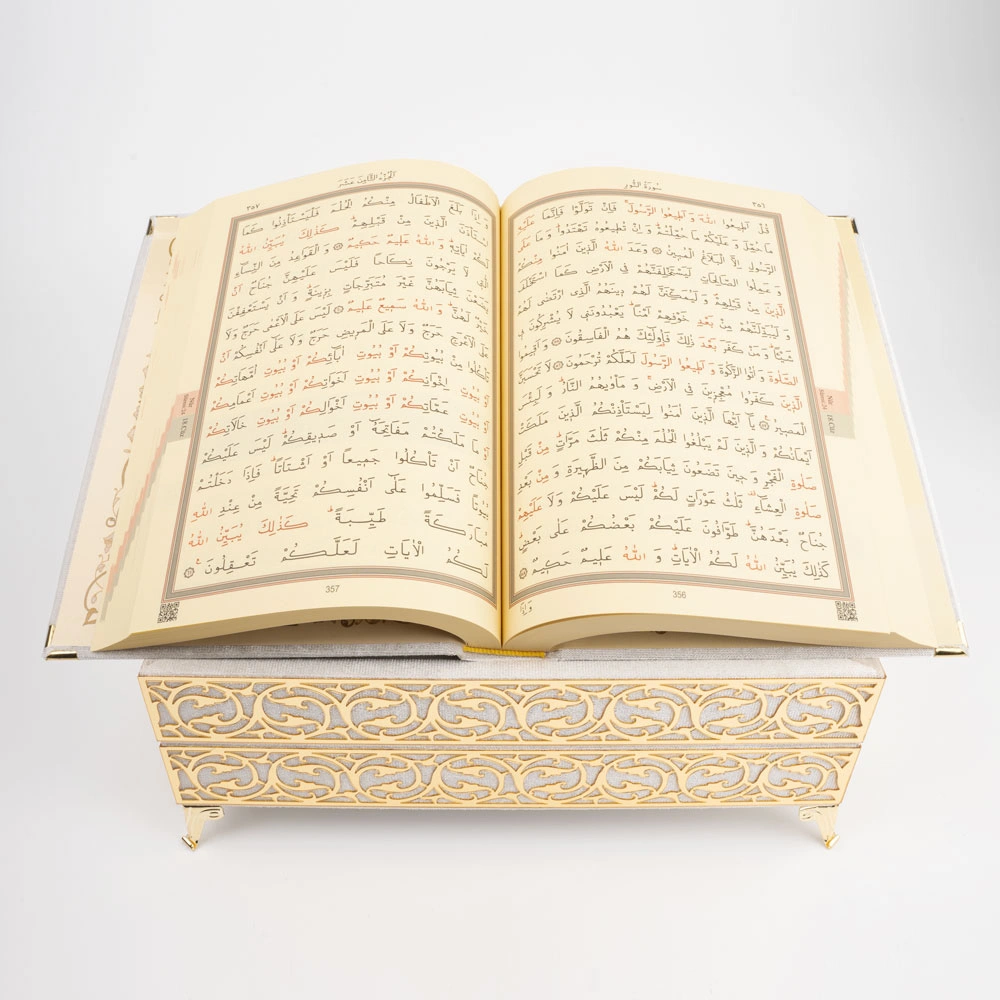 سُورَةُ النُّورِ
٣٥٦
قُلْ اَطِيعُوا اللّٰهَ وَ اَطِيعُوا الرَّسُولَۚ فَاِنْ تَوَلَّوْا فَاِنَّمَا عَلَيْهِ
مَا حُمِّلَ وَ عَلَيْكُمْ مَا حُمِّلْتُمْۜ وَ اِنْ تُطِيعُوهُ تَهْتَدُواۜ وَ مَا عَلَى
الرَّسُولِ اِلَّا الْبَلَاغُ الْمُبِينُ ﴿٥٤﴾ وَعَدَ اللّٰهُ الَّذِينَ اٰمَنُوا مِنْكُمْ
وَ عَمِلُوا الصَّالِحَاتِ لَيَسْتَخْلِفَنَّهُمْ فِي الْاَرْضِ كَمَا اسْتَخْلَفَ
الَّذِينَ مِنْ قَبْلِهِمْۖ وَ لَيُمَكِّنَنَّ لَهُمْ دِينَهُمُ الَّذِي ارْتَضٰى لَهُمْ
وَ لَيُبَدِّلَنَّهُمْ مِنْ بَعْدِ خَوْفِهِمْ اَمْنًاۜ يَعْبُدُونَنِي لَا يُشْرِكُونَ بِي
شَيْـًٔاۜ وَ مَنْ كَفَرَ بَعْدَ ذٰلِكَ فَاُولٰٓئِكَ هُمُ الْفَاسِقُونَ ﴿٥٥﴾ وَ اَقِيمُوا
الصَّلٰوةَ وَ اٰتُوا الزَّكٰوةَ وَ اَطِيعُوا الرَّسُولَ لَعَلَّكُمْ تُرْحَمُونَ ﴿٥٦﴾ لَا تَحْسَبَنَّ
الَّذِينَ كَفَرُوا مُعْجِزِينَ فِي الْاَرْضِۚ وَ مَأْوٰيهُمُ النَّارُۜ وَ لَبِئْسَ
الْمَصِيرُ ﴿٥٧﴾ يَٓا اَيُّهَا الَّذِينَ اٰمَنُوا لِيَسْتَأْذِنْكُمُ الَّذِينَ مَلَكَتْ
اَيْمَانُكُمْ وَ الَّذِينَ لَمْ يَبْلُغُوا الْحُلُمَ مِنْكُمْ ثَلٰثَ مَرَّاتٍۜ مِنْ قَبْلِ
صَلٰوةِ الْفَجْرِ وَ حِينَ تَضَعُونَ ثِيَابَكُمْ مِنَ الظَّهِيرَةِ وَ مِنْ بَعْدِ
صَلٰوةِ الْعِشَٓاءِ۠ ثَلٰثُ عَوْرَاتٍ لَكُمْۜ لَيْسَ عَلَيْكُمْ وَ لَا عَلَيْهِمْ
جُنَاحٌ بَعْدَهُنَّۜ طَوَّافُونَ عَلَيْكُمْ بَعْضُكُمْ عَلٰى بَعْضٍۜ
كَذٰلِكَ يُبَيِّنُ اللّٰهُ لَكُمُ الْاٰيَاتِۜ وَ اللّٰهُ عَلِيمٌ حَكِيمٌ ﴿٥٨﴾
356
وَ اِذَا
18.Cüz
اَلْجُزْءُ الثَّامِنَ عَشَرَ
٣٥٧
وَ اِذَا بَلَغَ الْاَطْفَالُ مِنْكُمُ الْحُلُمَ فَلْيَسْتَأْذِنُوا كَمَا
اسْتَأْذَنَ الَّذِينَ مِنْ قَبْلِهِمْۜ كَذٰلِكَ يُبَيِّنُ اللّٰهُ
لَكُمْ اٰيَاتِهِۜ وَ اللّٰهُ عَلِيمٌ حَكِيمٌ ﴿٥٩﴾ وَ الْقَوَاعِدُ مِنَ النِّسَٓاءِ
الّٰتِي لَا يَرْجُونَ نِكَاحًا فَلَيْسَ عَلَيْهِنَّ جُنَاحٌ اَنْ
يَضَعْنَ ثِيَابَهُنَّ غَيْرَ مُتَبَرِّجَاتٍ بِزِينَةٍۜ وَ اَنْ يَسْتَعْفِفْنَ
خَيْرٌ لَهُنَّۜ وَ اللّٰهُ سَمِيعٌ عَلِيمٌ ﴿٦٠﴾ لَيْسَ عَلَى الْاَعْمٰى حَرَجٌ وَ لَا
عَلَى الْاَعْرَجِ حَرَجٌ وَ لَا عَلَى الْمَرِيضِ حَرَجٌ وَ لَا عَلٰٓى اَنْفُسِكُمْ اَنْ
تَأْكُلُوا مِنْ بُيُوتِكُمْ اَوْ بُيُوتِ اٰبَٓائِكُمْ اَوْ بُيُوتِ اُمَّهَاتِكُمْ
اَوْ بُيُوتِ اِخْوَانِكُمْ اَوْ بُيُوتِ اَخَوَاتِكُمْ اَوْ بُيُوتِ اَعْمَامِكُمْ
اَوْ بُيُوتِ عَمَّاتِكُمْ اَوْ بُيُوتِ اَخْوَالِكُمْ اَوْ بُيُوتِ خَالَاتِكُمْ
اَوْ مَا مَلَكْتُمْ مَفَاتِحَهُٓ اَوْ صَدِيقِكُمْۜ لَيْسَ عَلَيْكُمْ
جُنَاحٌ اَنْ تَأْكُلُوا جَمِيعًا اَوْ اَشْتَاتًاۜ فَاِذَا دَخَلْتُمْ
بُيُوتًا فَسَلِّمُوا عَلٰٓى اَنْفُسِكُمْ تَحِيَّةً مِنْ عِنْدِ اللّٰهِ
مُبَارَكَةً طَيِّبَةًۜ كَذٰلِكَ يُبَيِّنُ اللّٰهُ
لَكُمُ الْاٰيَاتِ لَعَلَّكُمْ تَعْقِلُونَ ﴿٦١﴾
357
18.Cüz